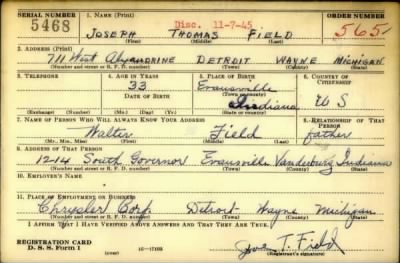 SERIAL NUMBER 1. NAME (Print) ORDER NUMBER
Disc. 11-7-45
5468 JOSEPH THOMAS FIELD 565
(First) (Middle) (Last)
2. ADDRESS (Print)
711 West Alexandrine DETROIT WAYNE MICHIGAN
(Number and street or R. F. D. number) (Town) (County) (State)
3. TELEPHONE 4. AGE IN YEARS 5. PLACE OF BIRTH 6. COUNTRY OF CITIZENSHIP
33 Evansville
DATE OF BIRTH (Town or county)
Indiana U S
(Exchange) (Number) (Mo.) (Day) (Yr.) (State or country)
7. NAME OF PERSON WHO WILL ALWAYS KNOW YOUR ADDRESS 8. RELATIONSHIP OF THAT PERSON
Walter Field father
(Mr., Mrs., Miss) (First) (Middle) (Last)
9. ADDRESS OF THAT PERSON
12-14 South Governor Evansville Vanderburg Indiana
(Number and street or R. F. D. number) (Town) (County) (State)
10. EMPLOYER'S NAME
11. PLACE OF EMPLOYMENT OR BUSINESS
Chrysler Corp. Detroit Wayne Michigan
(Number and street or R. F. D. number) (Town) (County) (State)
I AFFIRM THAT I HAVE VERIFIED ABOVE ANSWERS AND THAT THEY ARE TRUE.
REGISTRATION CARD
D. S. S. Form 1 (over) T. Field
(Registrant's signature)